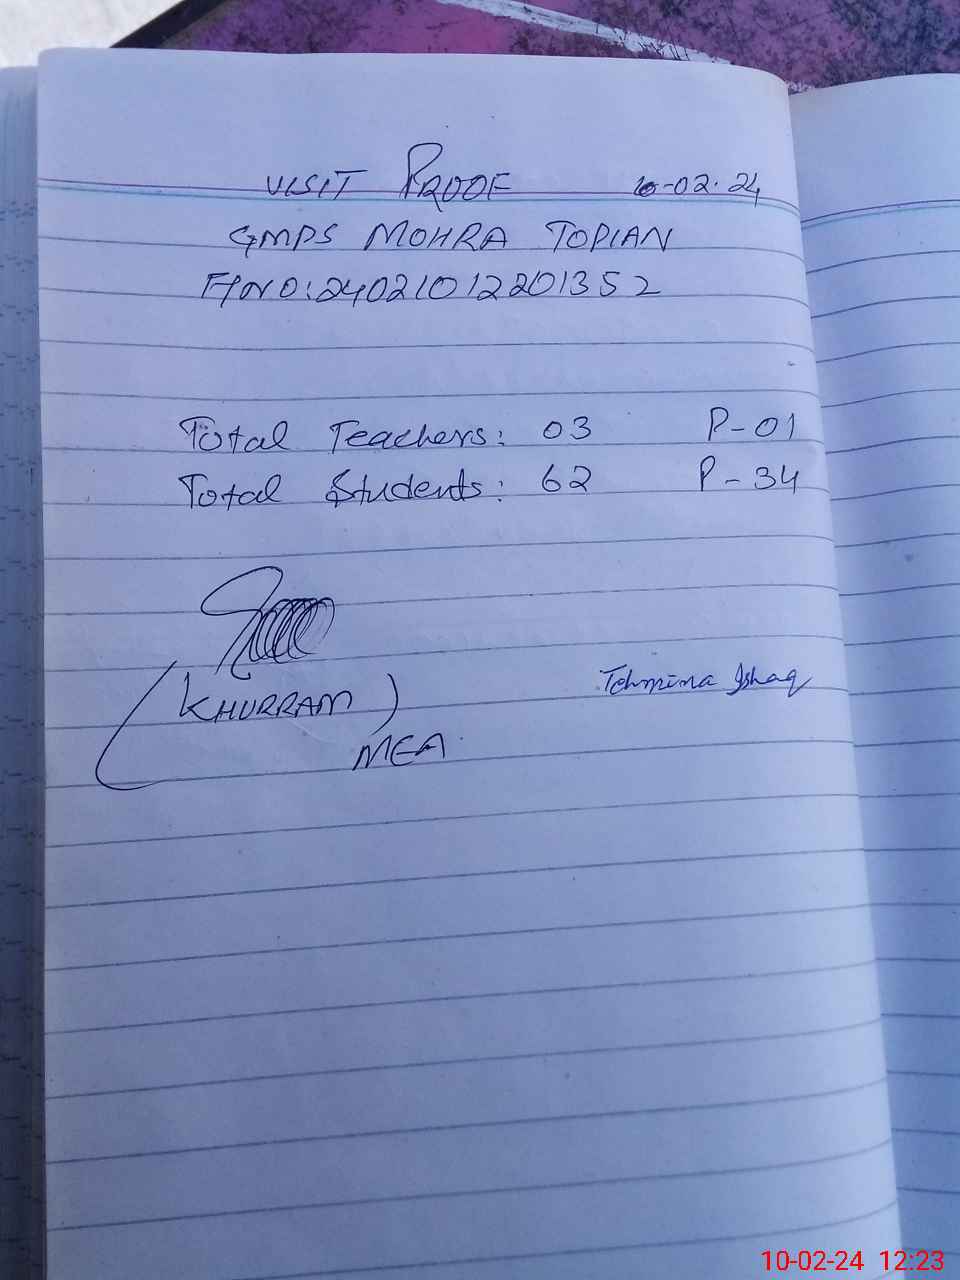 VISIT PROOF 10-02-24
GMPS MOHRA TOPIAN
F/NO:240210122201352
Total Teachers: 03 P-01
Total Students: 62 P-34
(KHURRAM)
Tehmina Ishaq
MEA
10-02-24 12:23